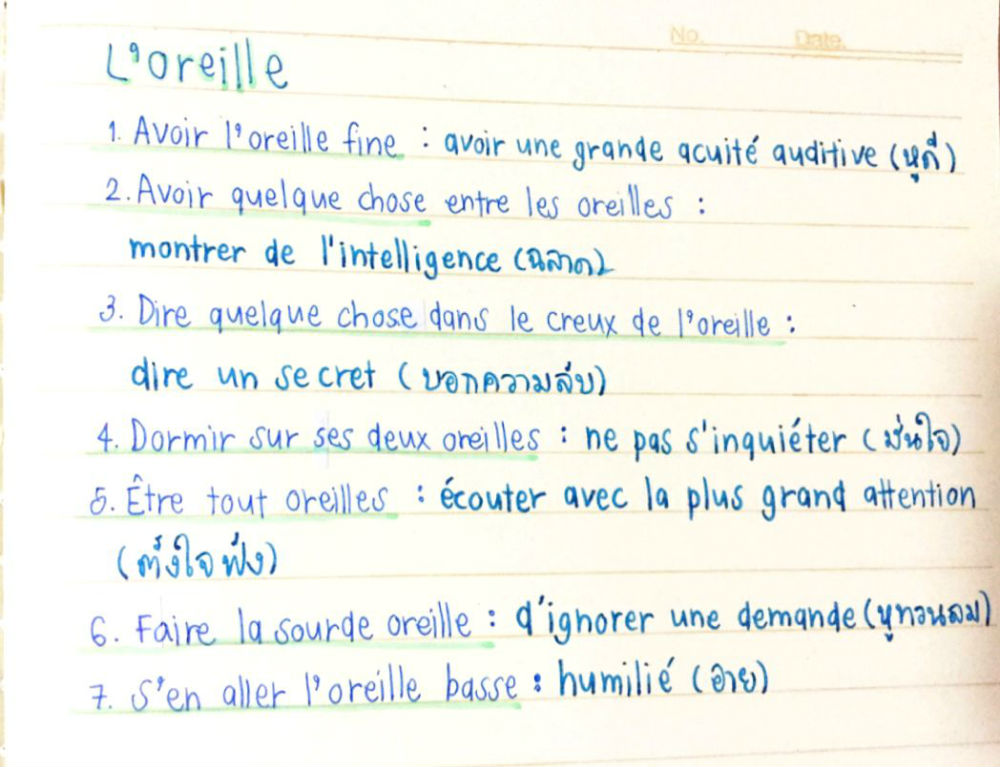 No. Date.
L'oreille
1. Avoir l'oreille fine : avoir une grande acuité auditive (หูดี)
2. Avoir quelque chose entre les oreilles :
montrer de l'intelligence (ฉลาด)
3. Dire quelque chose dans le creux de l'oreille :
dire un secret (บอกความลับ)
4. Dormir sur ses deux oreilles : ne pas s'inquiéter (มั่นใจ)
5. Être tout oreilles : écouter avec la plus grand attention
(ตั้งใจฟัง)
6. Faire la sourde oreille : d'ignorer une demande (หูทวนลม)
7. S'en aller l'oreille basse : humilié (อาย)